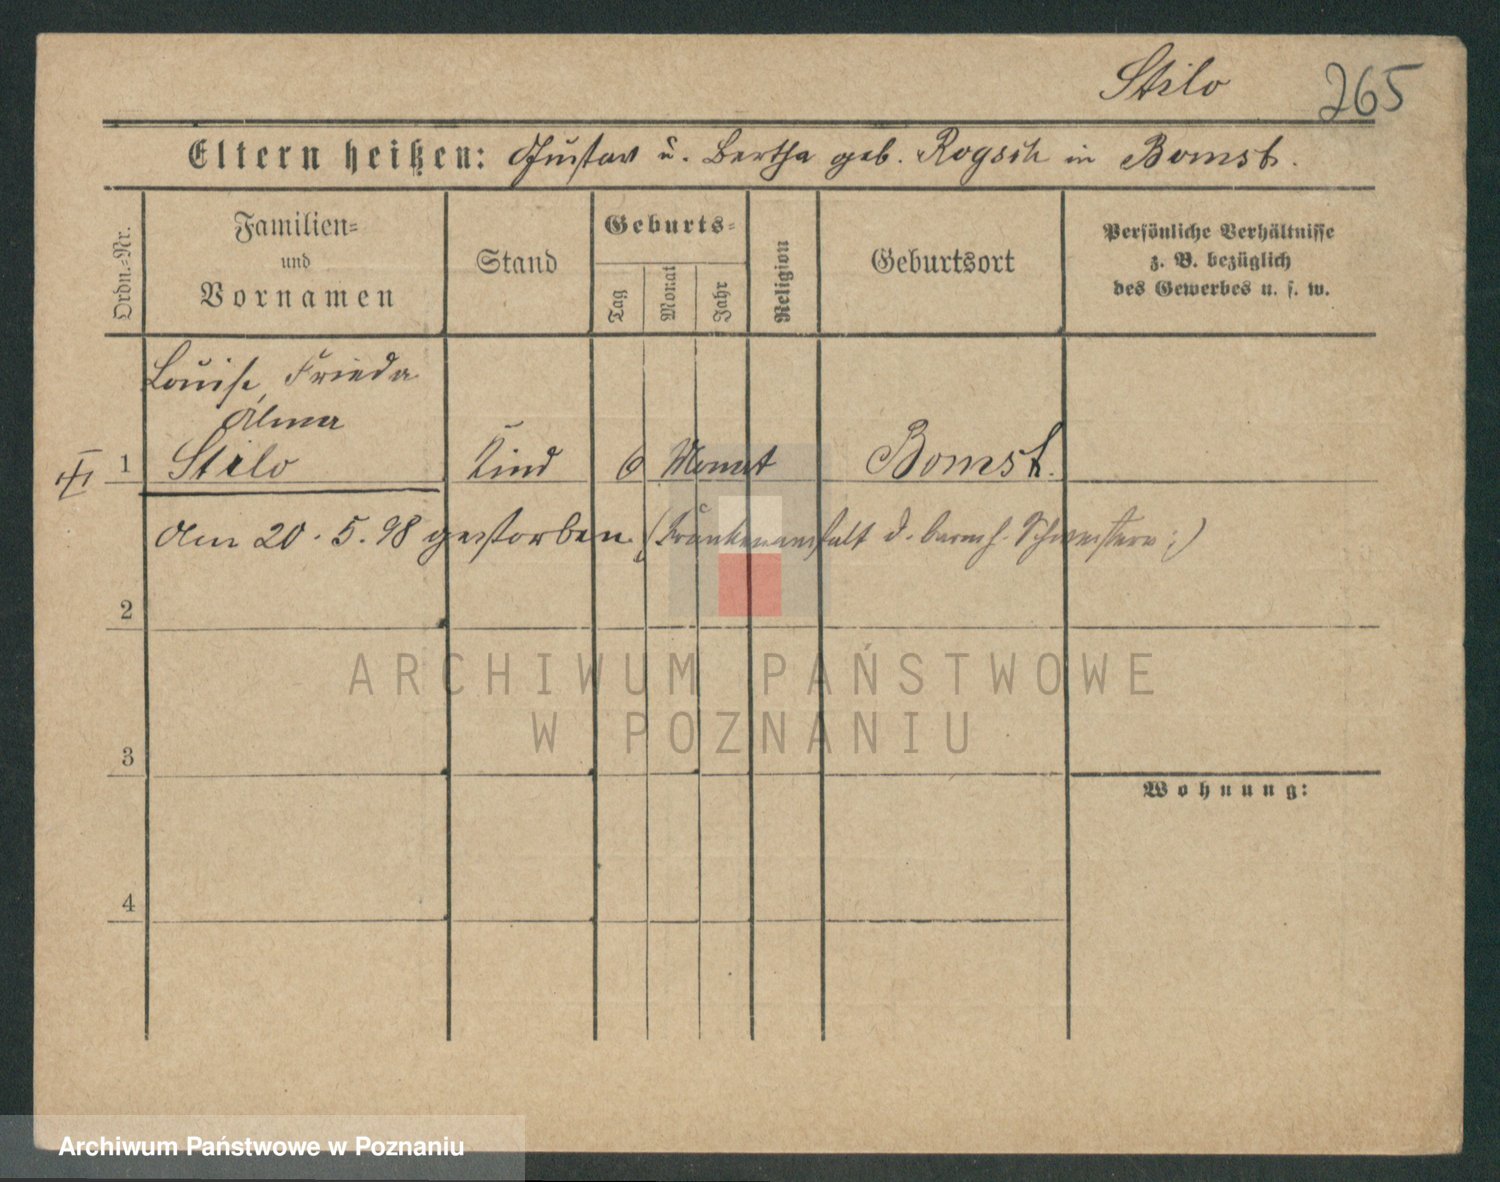 Stilo 265
Eltern heißen: Gustav u. Bertha geb. Rogsch in Bomst.
Ordn.-Nr.
Familien-
und
Vornamen
Stand
Geburts-
Tag
Monat
Jahr
Religion
Geburtsort
Persönliche Verhältnisse
z. B. bezüglich
des Gewerbes u. s. w.
Louise, Frieda
Alma
1 Stilo Kind 6 Monat Bomst.
Am 20. 5. 98 gestorben (Krankenanstalt d. barmh. Schwestern;)
2
ARCHIWUM PAŃSTWOWE
W POZNANIU
3
Wohnung:
4
Archiwum Państwowe w Poznaniu